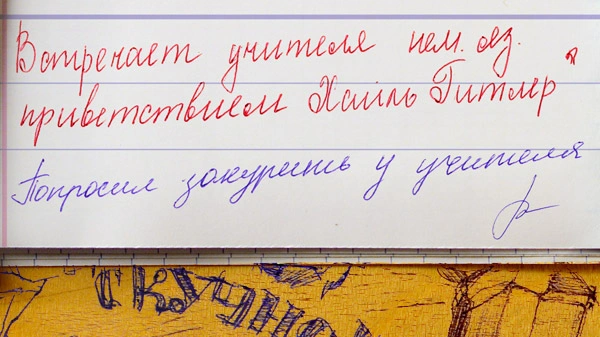 Встречает учителя нем. яз.
приветствием Хаиль Гитлер"
Попросил закурить у учителя
СКУЧНО